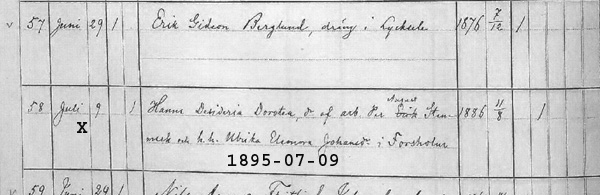 v 57 Juni 29 1 Erik Gideon Berglund, dräng i Lycksele 1876 7/12 1
58 Juli 9 1 Hanna Desideria Dorotea, d. af arb. Per August Sten- 1886 11/8 1
X
meck och h.h. Ulrika Eleonora Johansd. i Forsholm
1895-07-09
v 59 Juni 24 1